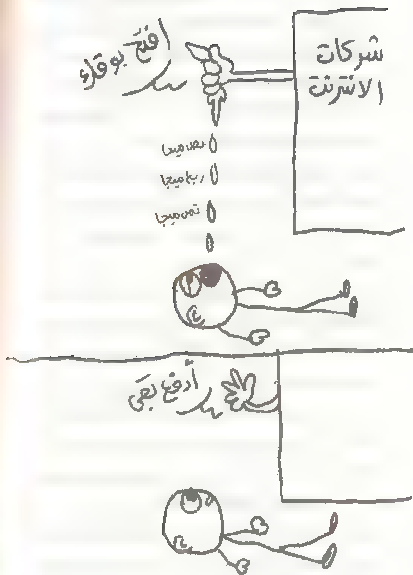 شركات
الانترنت
افتح بوقك
نص ميجا
ربع ميجا
تمن ميجا
أدفع بقى